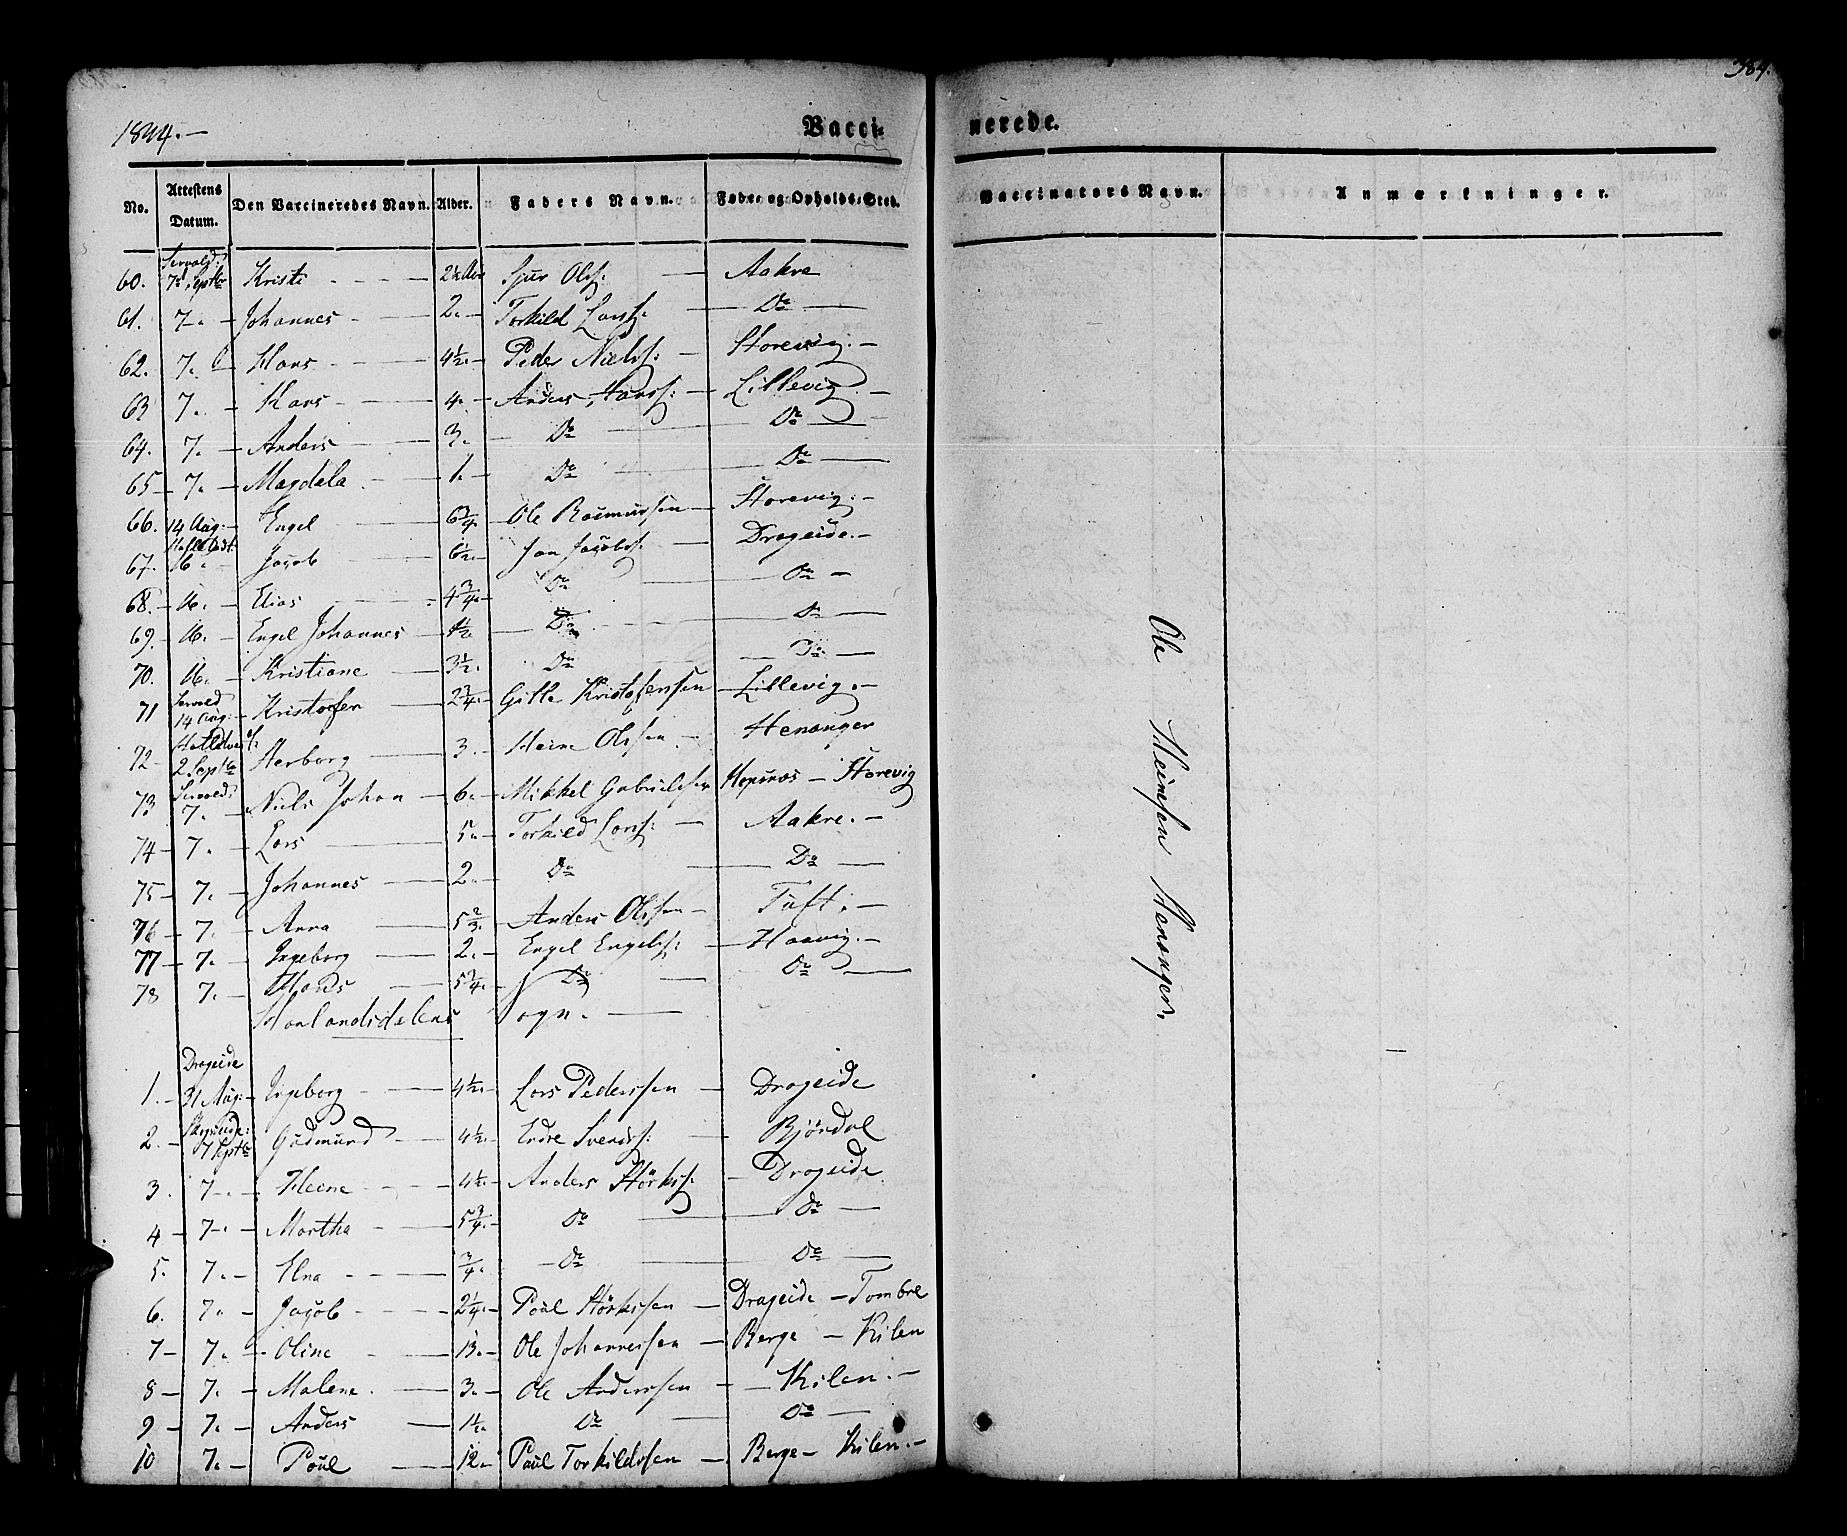 384.
1844.—
Vacci- nerede.
No. Attestens Datum. Den Vaccineredes Navn. Alder. Faders Navn. Føde- og Opholds-Sted. Vaccinators Navn. Anmærkninger.
60. 7d Septbr Kristi 2½ Aar Sjur Olss: Aakre
61. 7. Johannes 2. Torkild Larss: Do
62. 7. Hans 4½. Peder Nielss: Storevig.
63 7. Hans 4. Anders Hanss: Lillevig
64. 7. Anders 3. Do Do
65 7. Magdela 1. Do Do
66. 14 Aug: Engel 6¾. Ole Rasmussen Storevig.
67. 16. Jacob 6½. Jan Jacobs. Drageide.
68. 16. Elias 4¾. Do Do
69. 16. Engel Johannes 1½ Do Do
70. 16. Kristiane 3½. Do Do
71 14 Aug: Kristofer 2¾. Gitle Kristofersen Lillevig.
72 2 Septbr Herborg 3. Heine Olssen Henanger
73 7. Niels Johan 6. Mikkel Gabrielsen Hopsnes — Storevig
74 7. Lars 5. Torkild Larss: Aakre.
75 7. Johannes 2. Do Do
76 7. Anna 5⅔. Anders Olssen Tuft.
77 7. Ingeborg 2. Engel Engelss: Haavig.
78 7. Hans 5¾. Do Do
Haalandsdalens Sogn.
Drageide
1. 31 Aug: Ingeborg 4½. Lars Pederssen Drageide
2. 7 Septbr Gudmund 4½. Endre Svends: Bjørdal
3. 7. Heine 4½. Anders Størkss. Drageide
4 7. Martha 5¾. Do Do
5. 7. Elna ¾. Do Do
6. 7. Jacob 2¼. Poul Størkssen Drageide — Tombre
7 7. Oline 13. Ole Johannessen Berge — Kilen
8 7. Malene. 3. Ole Anderssen Kilen.
9 7. Anders 1½. Do Do
10 7. Poul 12. Paul Torkildssen Berge — Kilen.
Ole Heinesen Henanger.